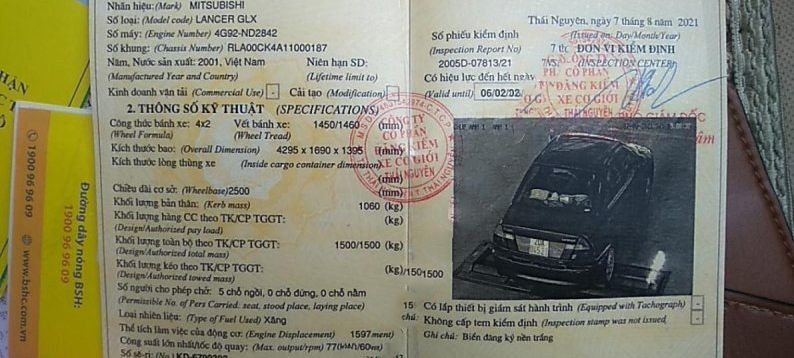 Nhãn hiệu:(Mark) MITSUBISHI
Số loại: (Model code) LANCER GLX
Số máy: (Engine Number) 4G92-ND2842
Số khung: (Chassis Number) RLA00CK4A11000187
Năm, Nước sản xuất: 2001, Việt Nam Niên hạn SD:
(Manufactured Year and Country) (Lifetime limit to)
Kinh doanh vận tải (Commercial Use) - Cải tạo (Modification)
2. THÔNG SỐ KỸ THUẬT (SPECIFICATIONS)
Công thức bánh xe: 4x2 Vết bánh xe: 1450/1460 (mm)
(Wheel Formula) (Wheel Tread)
Kích thước bao: (Overall Dimension) 4295 x 1690 x 1395 (mm)
Kích thước lòng thùng xe (Inside cargo container dimension)
(mm)
Chiều dài cơ sở: (Wheelbase)2500 (mm)
Khối lượng bản thân: (Kerb mass) 1060 (kg)
Khối lượng hàng CC theo TK/CP TGGT: (kg)
(Design/Authorized pay load)
Khối lượng toàn bộ theo TK/CP TGGT: 1500/1500 (kg)
(Design/Authorized total mass)
Khối lượng kéo theo TK/CP TGGT: (kg)
(Design/Authorized towed mass)
Số người cho phép chở: 5 chỗ ngồi, 0 chỗ đứng, 0 chỗ nằm
(Permissible No. of Pers Carried: seat, stood place, laying place)
Loại nhiên liệu: (Type of Fuel Used) Xăng
Thể tích làm việc của động cơ: (Engine Displacement) 1597
Công suất lớn nhất/tốc độ quay: (Max. output/rpm) 77
CÔNG TY
CỔ PHẦN
ĐĂNG KIỂM
XE CƠ GIỚI
THÁI NGUYÊN
Thái Nguyên, ngày 7 tháng 8 năm 2021
(Issued on: Day/Month/Year)
Số phiếu kiểm định
(Inspection Report No)
2005D-07813/21
ĐƠN VỊ KIỂM ĐỊNH
(INSPECTION CENTER)
Có hiệu lực đến hết ngày
(Valid until) 06/02/
CỔ PHẦN
ĐĂNG KIỂM
XE CƠ GIỚI
THÁI NGUYÊN
PHÓ GIÁM ĐỐC
Có lắp thiết bị giám sát hành trình (Equipped with Tachograph) -
Không cấp tem kiểm định (Inspection stamp was not issued) -
Ghi chú: Biển đăng ký nền trắng
Đường dây nóng BSH:
1900 96 96 09
1900 96 96 09
www.bshc.com.vn